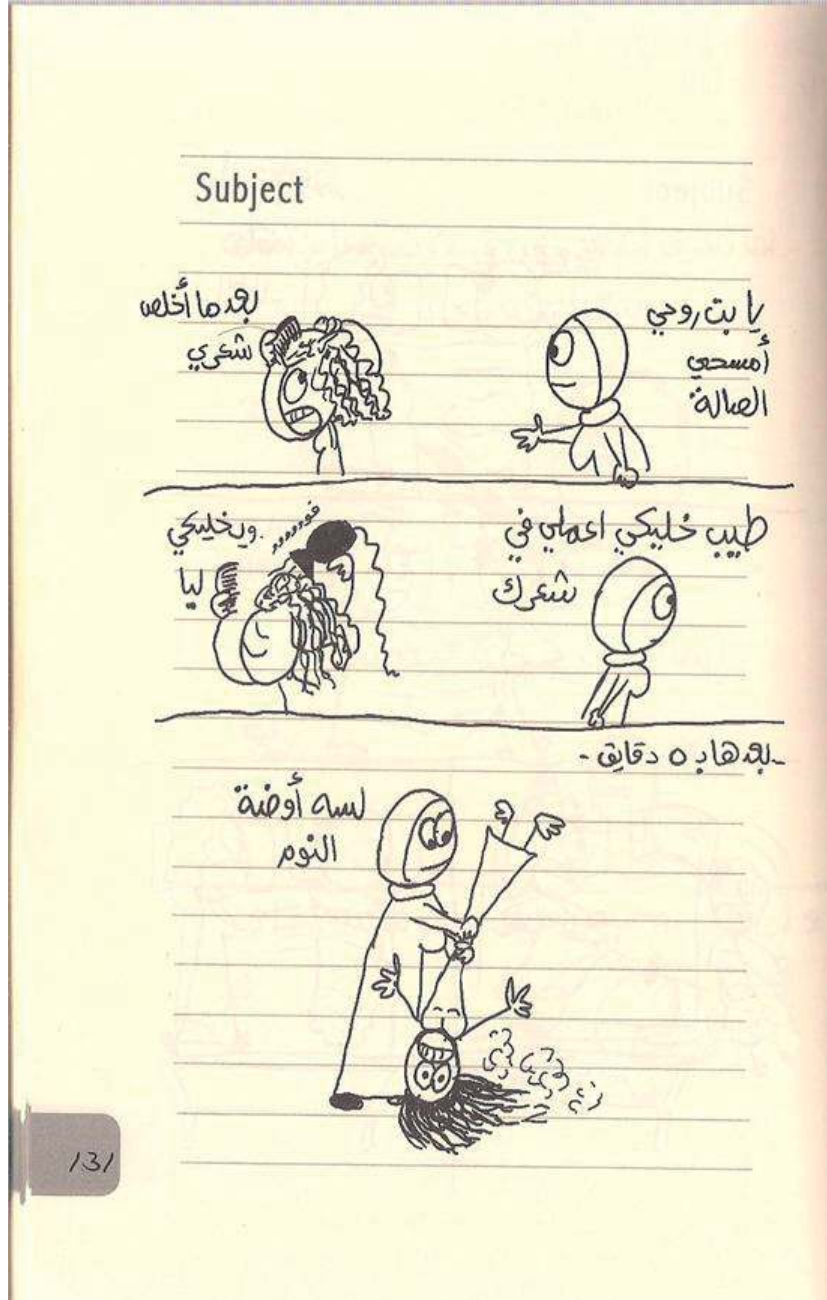 Subject
يا بت روحي
أمسحي
الصالة
بعد ما أخلص
شعري
طيب خليكي اعملي في
شعرك
فووووو
ويخليكي
ليا
-بعدها بـ ٥ دقايق-
لسه أوضة
النوم
131